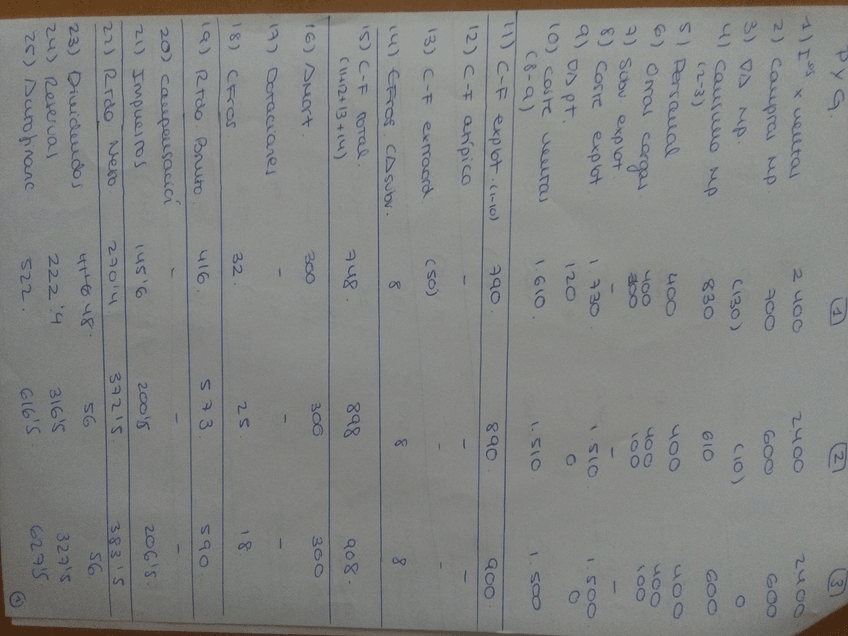 PyG. (1) (2) (3)
1) Iᵒˢ x ventas 2400 2400 2400
2) Compras MP. 700 600 600
3) ΔD MP. (130) (10) 0
4) Consumo MP (2-3) 830 610 600
5) Personal 400 400 400
6) Otros cargos 400 400 400
7) Subv explot. 100 100
8) Coste explot - 1.730 - 1.510. - 1.500
9) ΔD pt. 120 0 0
10) Coste ventas (8-9) 1.610. 1.510 1.500
11) C-F explot. (1-10) 790. 890. 900.
12) C-F atípico - - -
13) C-F extraord (50) - -
14) GFros. C/Δ subv. 8 8 8
15) C-F total. (11+12+13+14) 748. 898 908.
16) Amort. 300 300 300
17) Dotaciones - - -
18) GFros 32. 25 18
19) Rtdo Bruto 416. 573 590.
20) Compensación - - -
21) Impuestos 145'6 200'5 206'5.
22) Rtdo Neto 270'4 372'5 383'5
23) Dividendos 48. 56 56
24) Reservas 222'4 316'5 327'5
25) Autofinanc 522. 616'5 627'5